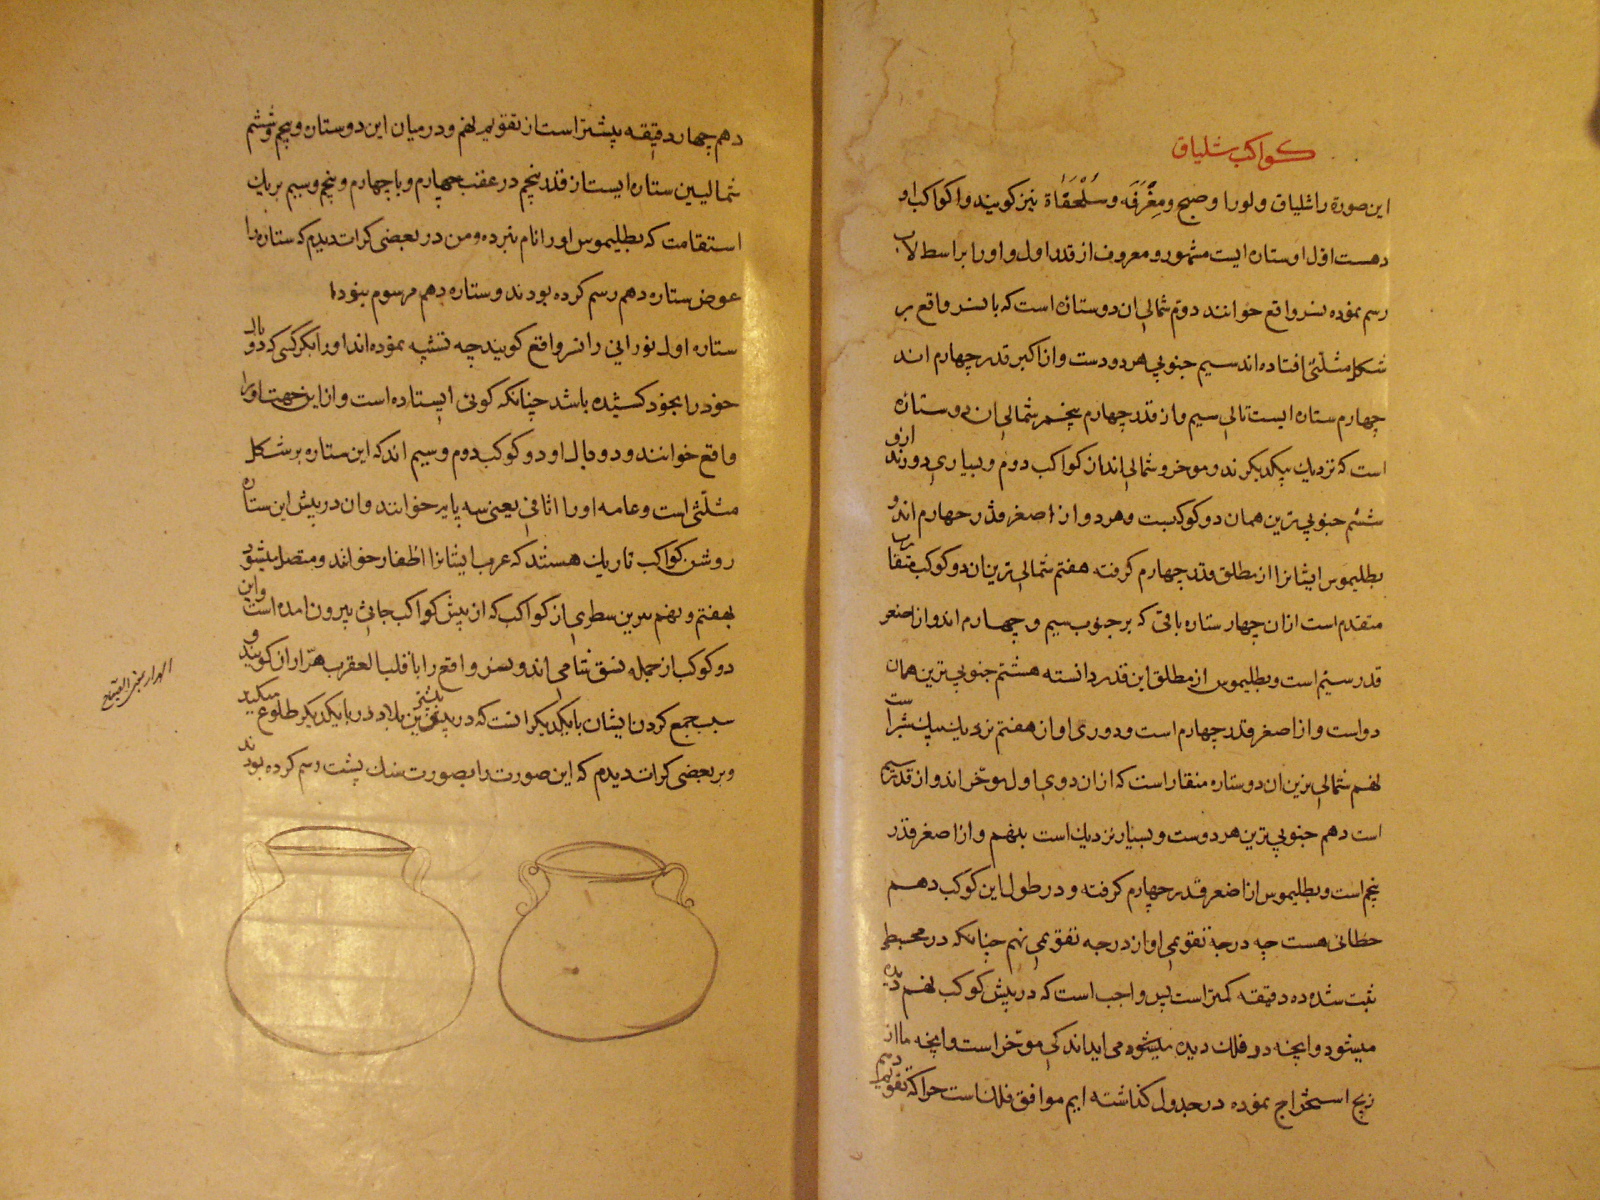 کواکب شلیاق
این صورة را شلیاق و لورا و صبح و مِعْرَفَه و سُلْحَفَاة نیز کویند و اکواکب او
دهست اول او ستاره ایست مشهور و معروف از قدر اول و او را بر اسطرلاب
رسم نموده نسر واقع خوانند دوم شمالی ان دو ستاره است که با نسر واقع بر
شکل مثلثی افتاده اند سیم جنوبی هر دو دست و از اکبر قدر چهارم اند
چهارم ستاره ایست تالی سیم و از قدر چهارم پنجم شمالی ان دو ستاره
است که نزدیك بیکدیکرند و موخر و شمالی اند از کواکب دوم و بسیاری دورند ازو
ششم جنوبی ترین همان دو کوکبست و هر دو از اصغر قدر چهارم اند و
بطلیموس ایشانرا از مطلق قدر چهارم کرفته هفتم شمالی ترین ان دو کوکب متقا
متقدم است از ان چهار ستاره باقی که بر جنوب سیم و چهارم اند و از اصغر
قدر سیم است و بطلیموس از مطلق این قدر دانسته هشتم جنوبی ترین همان
دو است و از اصغر قدر چهارم است و دوری او از هفتم نزدیك بیك شبر است
نهم شمالی ترین ان دو ستاره منقار است که از ان دوی اول موخر اند و از قدر سیم
است دهم جنوبی ترین هر دوست و بسیار نزدیك است بنهم و از اصغر قدر
پنجم است و بطلیموس از اصغر قدر چهارم کرفته و در طول این کوکب دهم
خطائی هست چه درجة تقویمی او از درجه تقویمی نهم چنانکه در مجسطی
ثبت شده ده دقیقه کمتر است پس واجب است که در پیش کوکب نهم دیده
میشود و انچه در فلك دیده میشود می اید اندکی موخر است و انچه ما از
زیج استخراج نموده در جدول کذاشته ایم موافق فلك است چرا که تقویم دهم
دهم چهار دقیقه بیشتر است از تقویم نهم و در میان این دو ستاره و پنجم و ششم
شمالیین ستاره ایست از قدر پنجم در عقب چهارم و با چهارم و پنجم و سیم بر یك
استقامت که بطلیموس او را نام نبرده و من در بعضی کرات دیدم که ستاره را
عوض ستاره دهم رسم کرده بودند و ستاره دهم مرسوم نبود
ستاره اول نورانی را نسر واقع کویند چه تشبیه نموده اند او را بکرکسی که دو بال
خود را بخود کشیده باشد چنانکه کوئی ایستاده است و از این جهت او را
واقع خوانند و دو بال او دو کوکب دوم و سیم اند که این ستاره بر شکل
مثلثی است و عامه او را اثافی یعنی سه پایه خوانند و ان در پیش این ستاره
روشن کواکب تاریك هستند که عرب ایشانرا اظفار خوانند و متصل میشود
بهفتم و نهم سرین سطری از کواکب که از پیش کواکب جاثی بیرون امده است و این
دو کوکب از جمله نسق شامی اند و نسر واقع را با قلب العقرب هرّاران کویند و
سبب جمع کردن ایشان با یکدیکر انست که در بیشترین بلاد در با یکدیکر طلوع میکنند
و بر بعضی کرات دیدم که این صورت را بصورت سنك پشت رسم کرده بودند